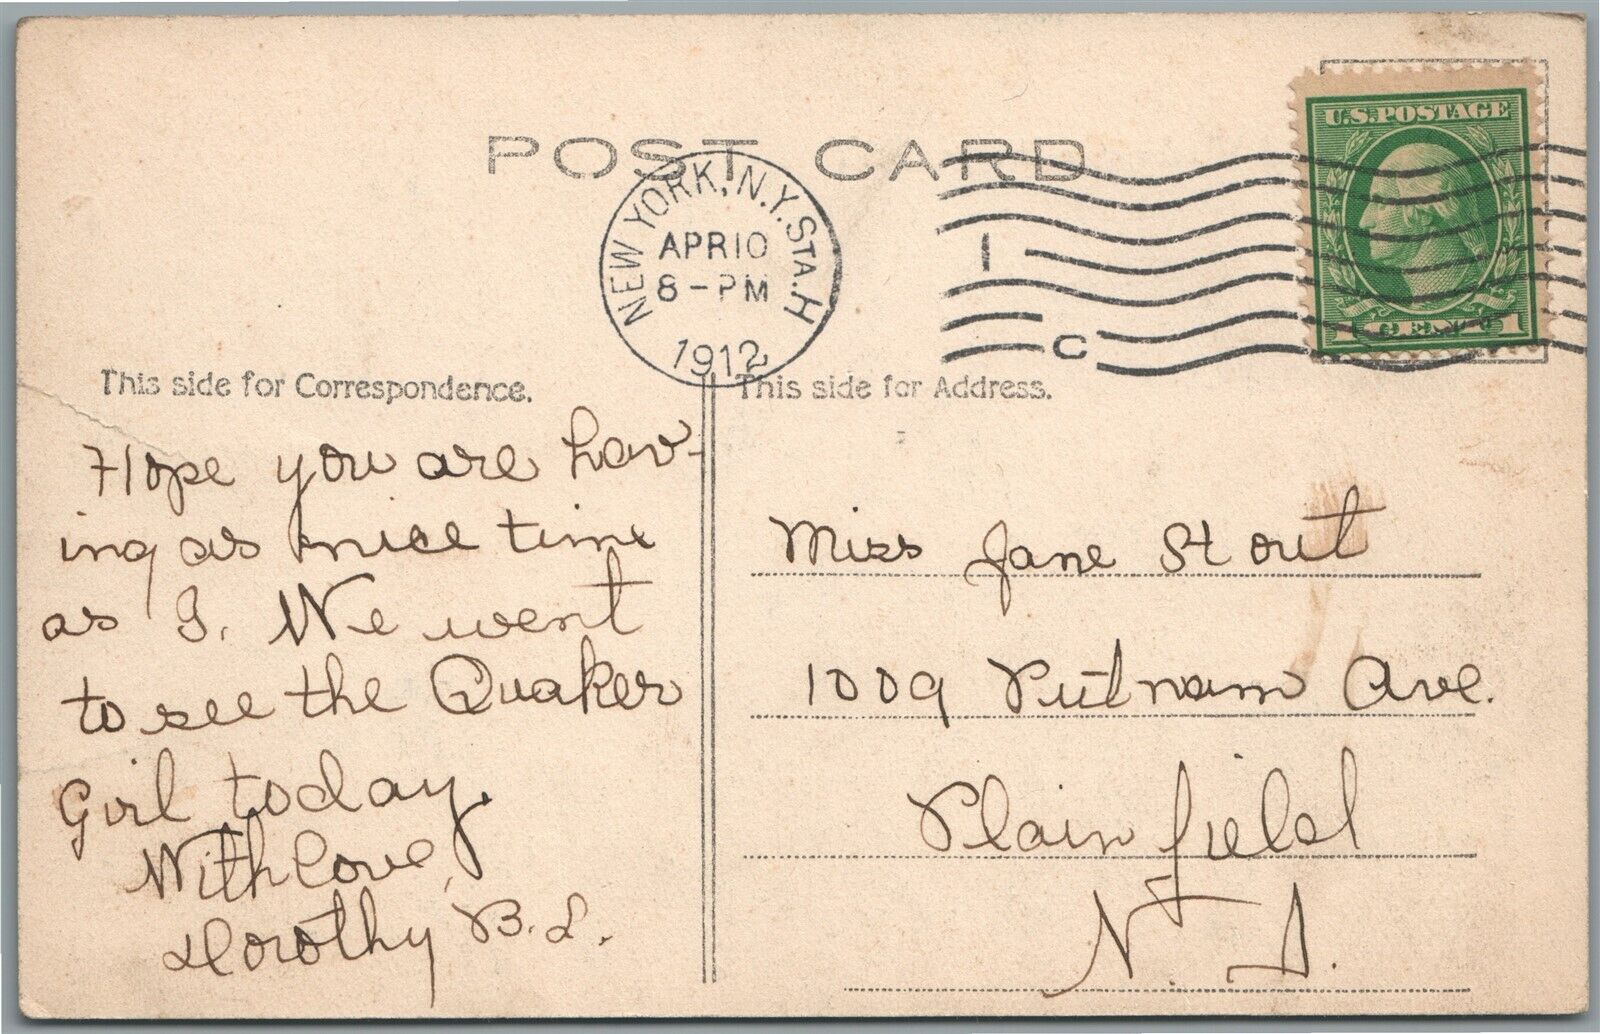 POST CARD
U.S.POSTAGE
NEW YORK, N.Y. STA. H
APR 10
8-PM
1912
1
C
1 CENT 1
This side for Correspondence.
This side for Address.
Hope you are hav-
ing as nice time
as I. We went
to see the Quaker
Girl today.
With love,
Dorothy B. L.
Miss Jane Stout
1009 Putnam Ave.
Plainfield
N. J.